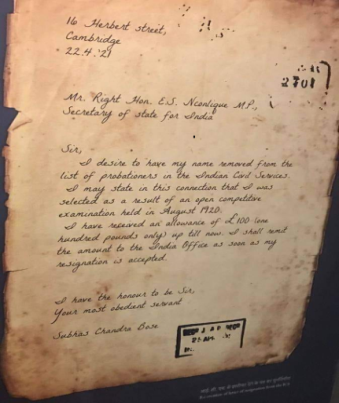 16 Herbert street,
Cambridge
22.4.21
2701
Mr. Right Hon. E.S. Nconlique M.P.,
Secretary of state for India
Sir,
I desire to have my name removed from the
list of probationers in the Indian Civil Service.
I may state in this connection that I was
selected as a result of an open competitive
examination held in August 1920.
I have received an allowance of £100 (one
hundred pounds only) up till now. I shall remit
the amount to the India Office as soon as my
resignation is accepted.
I have the honour to be Sir,
Your most obedient servant
Subhas Chandra Bose